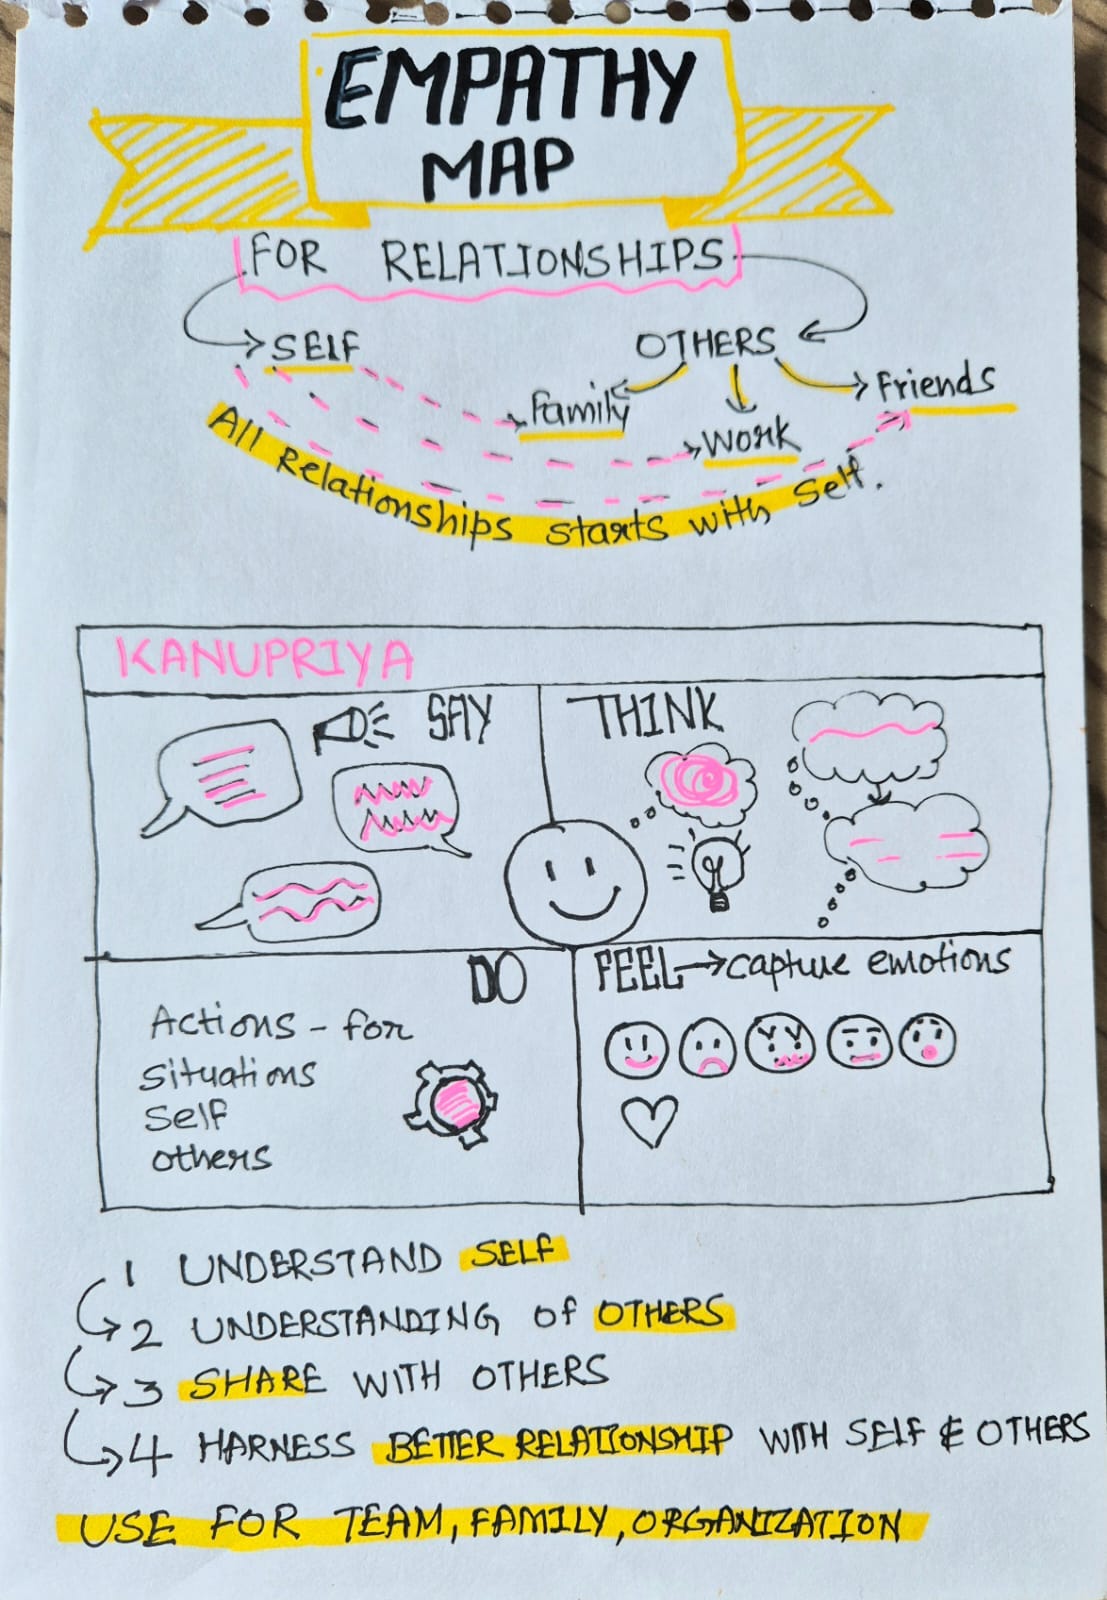 EMPATHY
MAP
FOR RELATIONSHIPS
SELF
OTHERS
Family
Work
Friends
All Relationships starts with Self.
KANUPRIYA
SAY
THINK
DO
Actions - for
situations
self
others
FEEL → capture emotions
1 UNDERSTAND SELF
2 UNDERSTANDING of OTHERS
3 SHARE WITH OTHERS
4 HARNESS BETTER RELATIONSHIP WITH SELF & OTHERS
USE FOR TEAM, FAMILY, ORGANIZATION